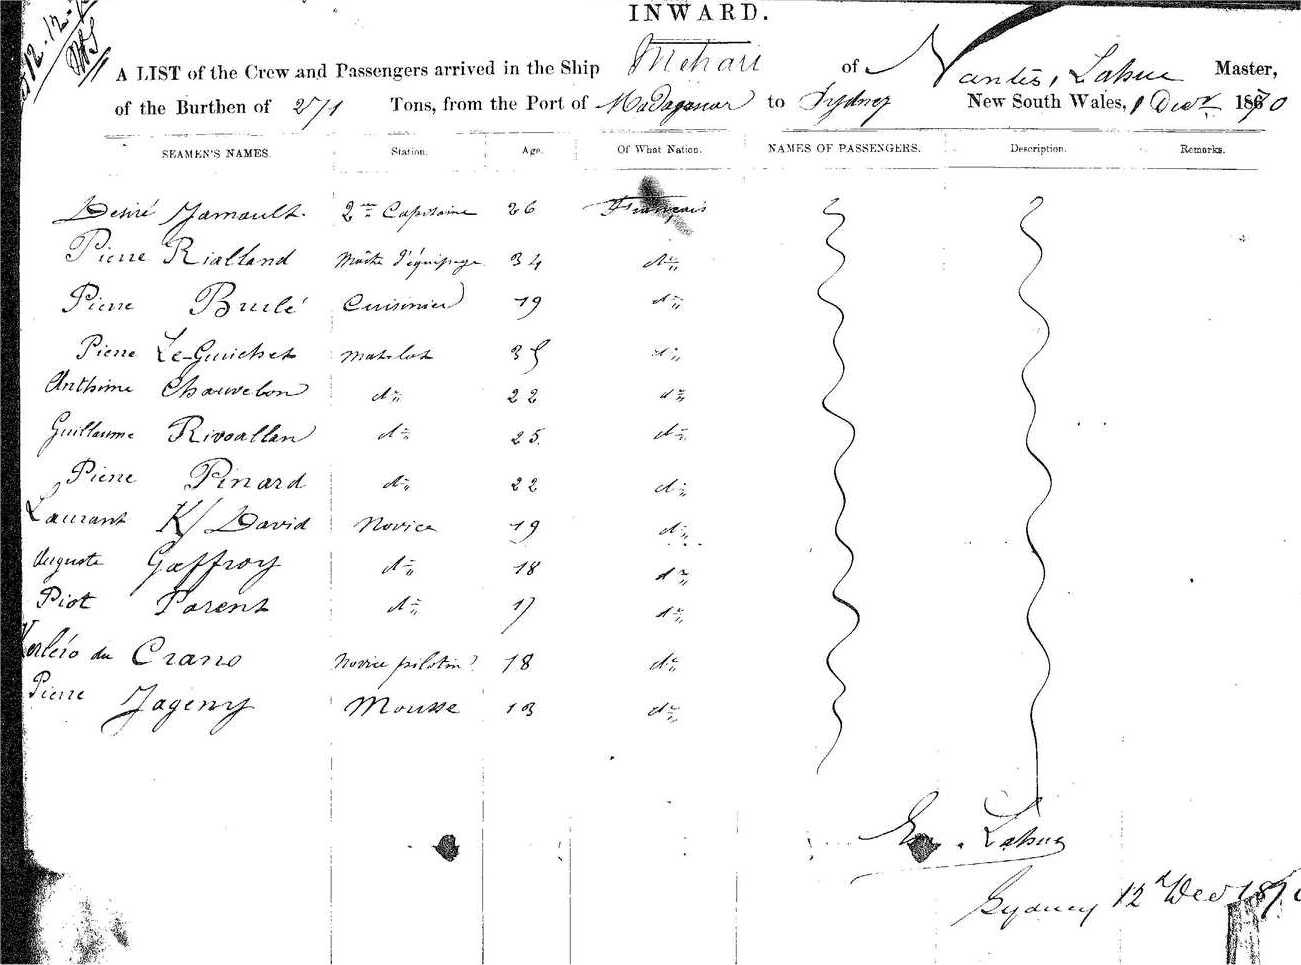 12.12.70
INWARD.
A LIST of the Crew and Passengers arrived in the Ship Mehari of Nantes, Lahue Master,
of the Burthen of 271 Tons, from the Port of Madagascar to Sydney New South Wales, 1 Decr 1870
SEAMEN'S NAMES. Station. Age. Of What Nation. NAMES OF PASSENGERS. Description. Remarks.
Desiré Jamault. 2me Capitaine 26 Français
Pierre Rialland Maître d'équipage 34 do
Pierre Brulé Cuisinier 19 do
Pierre Le-Guichet Matelot 35 do
Anthime Chauvelon do 22 do
Guillaume Rivoallan do 25. do
Pierre Pinard do 22 do
Laurant K/David Novice 19 do
Auguste Gaffroy do 18 do
Piot Parent do 17 do
Kerléro du Crano Novice pilotin 18 do
Pierre Jageny Mousse 13 do
Lahue
Sydney 12 Dec 1870